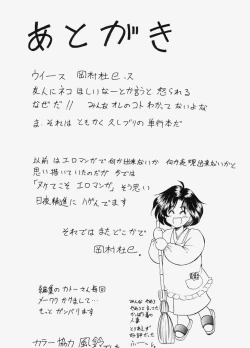 あとがき
ウイース 岡村杜已.ス
友人にネコ ほしいなーとか言うと 怒られる
なぜだ!! みんなオレのコト わかってないよな
ま それは ともかく 久しブリの 単行本だ
以前はエロマンガで何か出来ないか 何か表現出来ないかと
思い描いていたのだが 今では
「ヌケてこそ エロマンガ」そう思い
日夜精進に ハゲんでます
それではまたどこかで
岡村杜已.
編集の カトーさん毎回
メーワク かけまして…
もっと ガンバリます
カラー協力 風鈴